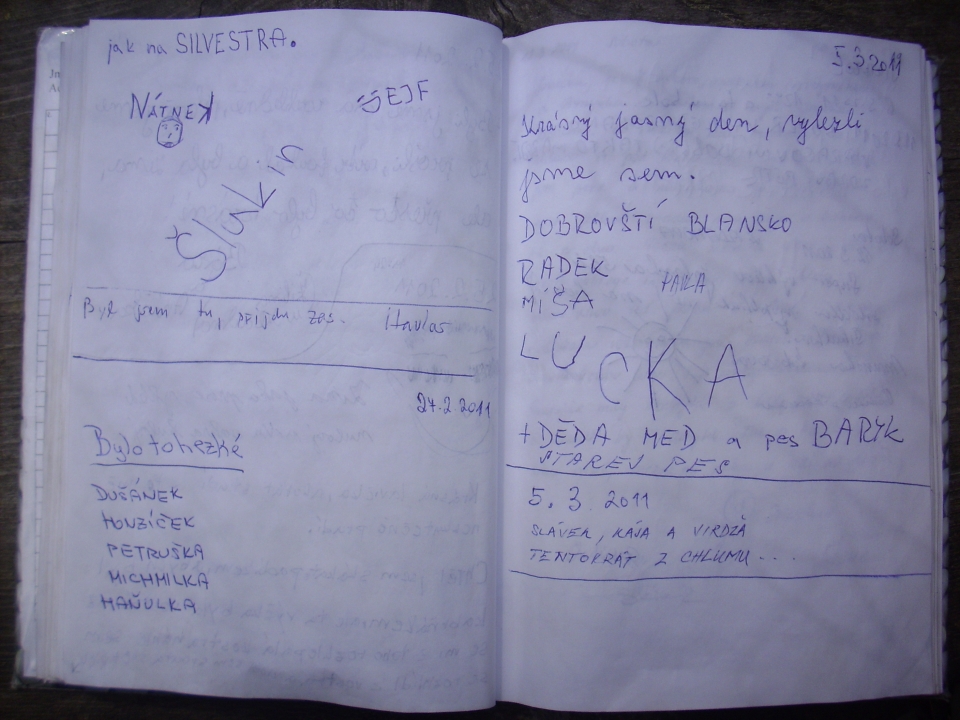 jak na SILVESTRA.
NÁTNEK
EJF
Byl jsem tu, prijdu zas.
27.2.2011
Bylo to hezké
DUŠÁNEK
HONZÍČEK
PETRUŠKA
MICHMILKA
HAŇULKA
5.3.2011
Krásný jasný den, vylezli
jsme sem.
DOBROVŠTÍ BLANSKO
RADEK
MÍŠA
LUCKA
+ DĚDA MED a pes BARYK
STAREJ PES
5. 3. 2011
SLÁVEK, KÁJA A VIRDŽA
TENTOKRÁT Z CHLUMU...